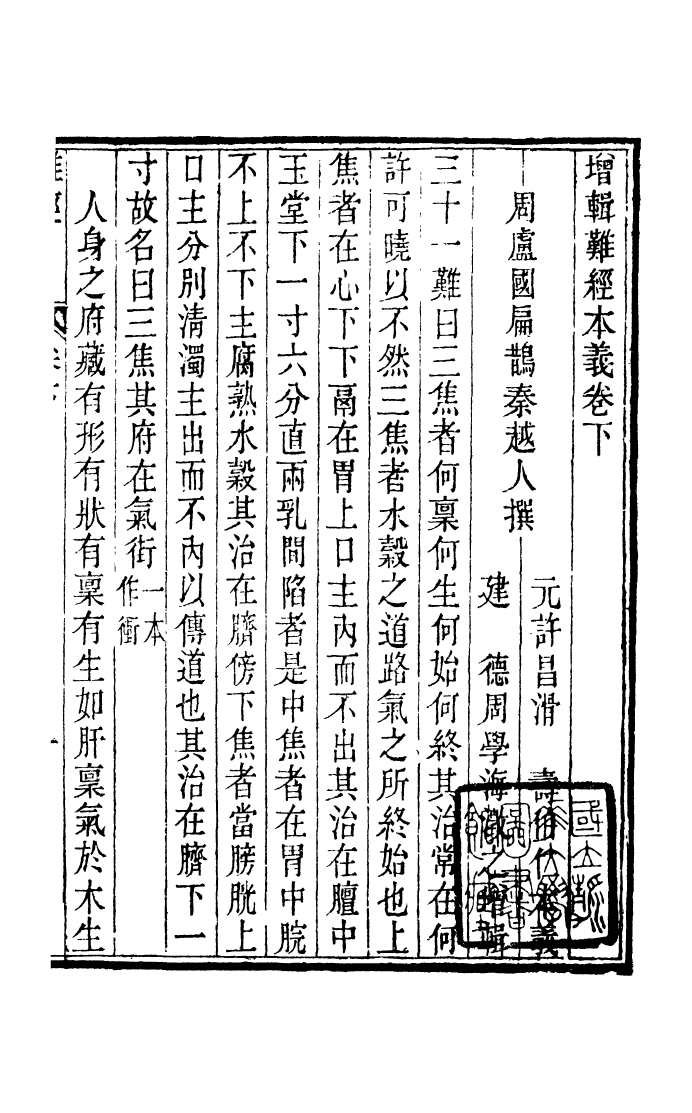 增輯難經本義卷下
周盧國扁鵲秦越人撰
元許昌滑 壽伯仁本義
建 德周學海澂之增輯
三十一難曰三焦者何稟何生何始何終其治常在何
許可曉以不然三焦者水糓之道路氣之所終始也上
焦者在心下下鬲在胃上口主內而不出其治在膻中
玉堂下一寸六分直兩乳間陷者是中焦者在胃中脘
不上不下主腐熟水糓其治在臍傍下焦者當膀胱上
口主分別清濁主出而不內以傳道也其治在臍下一
寸故名曰三焦其府在氣街一本作衝
人身之府藏有形有狀有稟有生如肝稟氣於木生